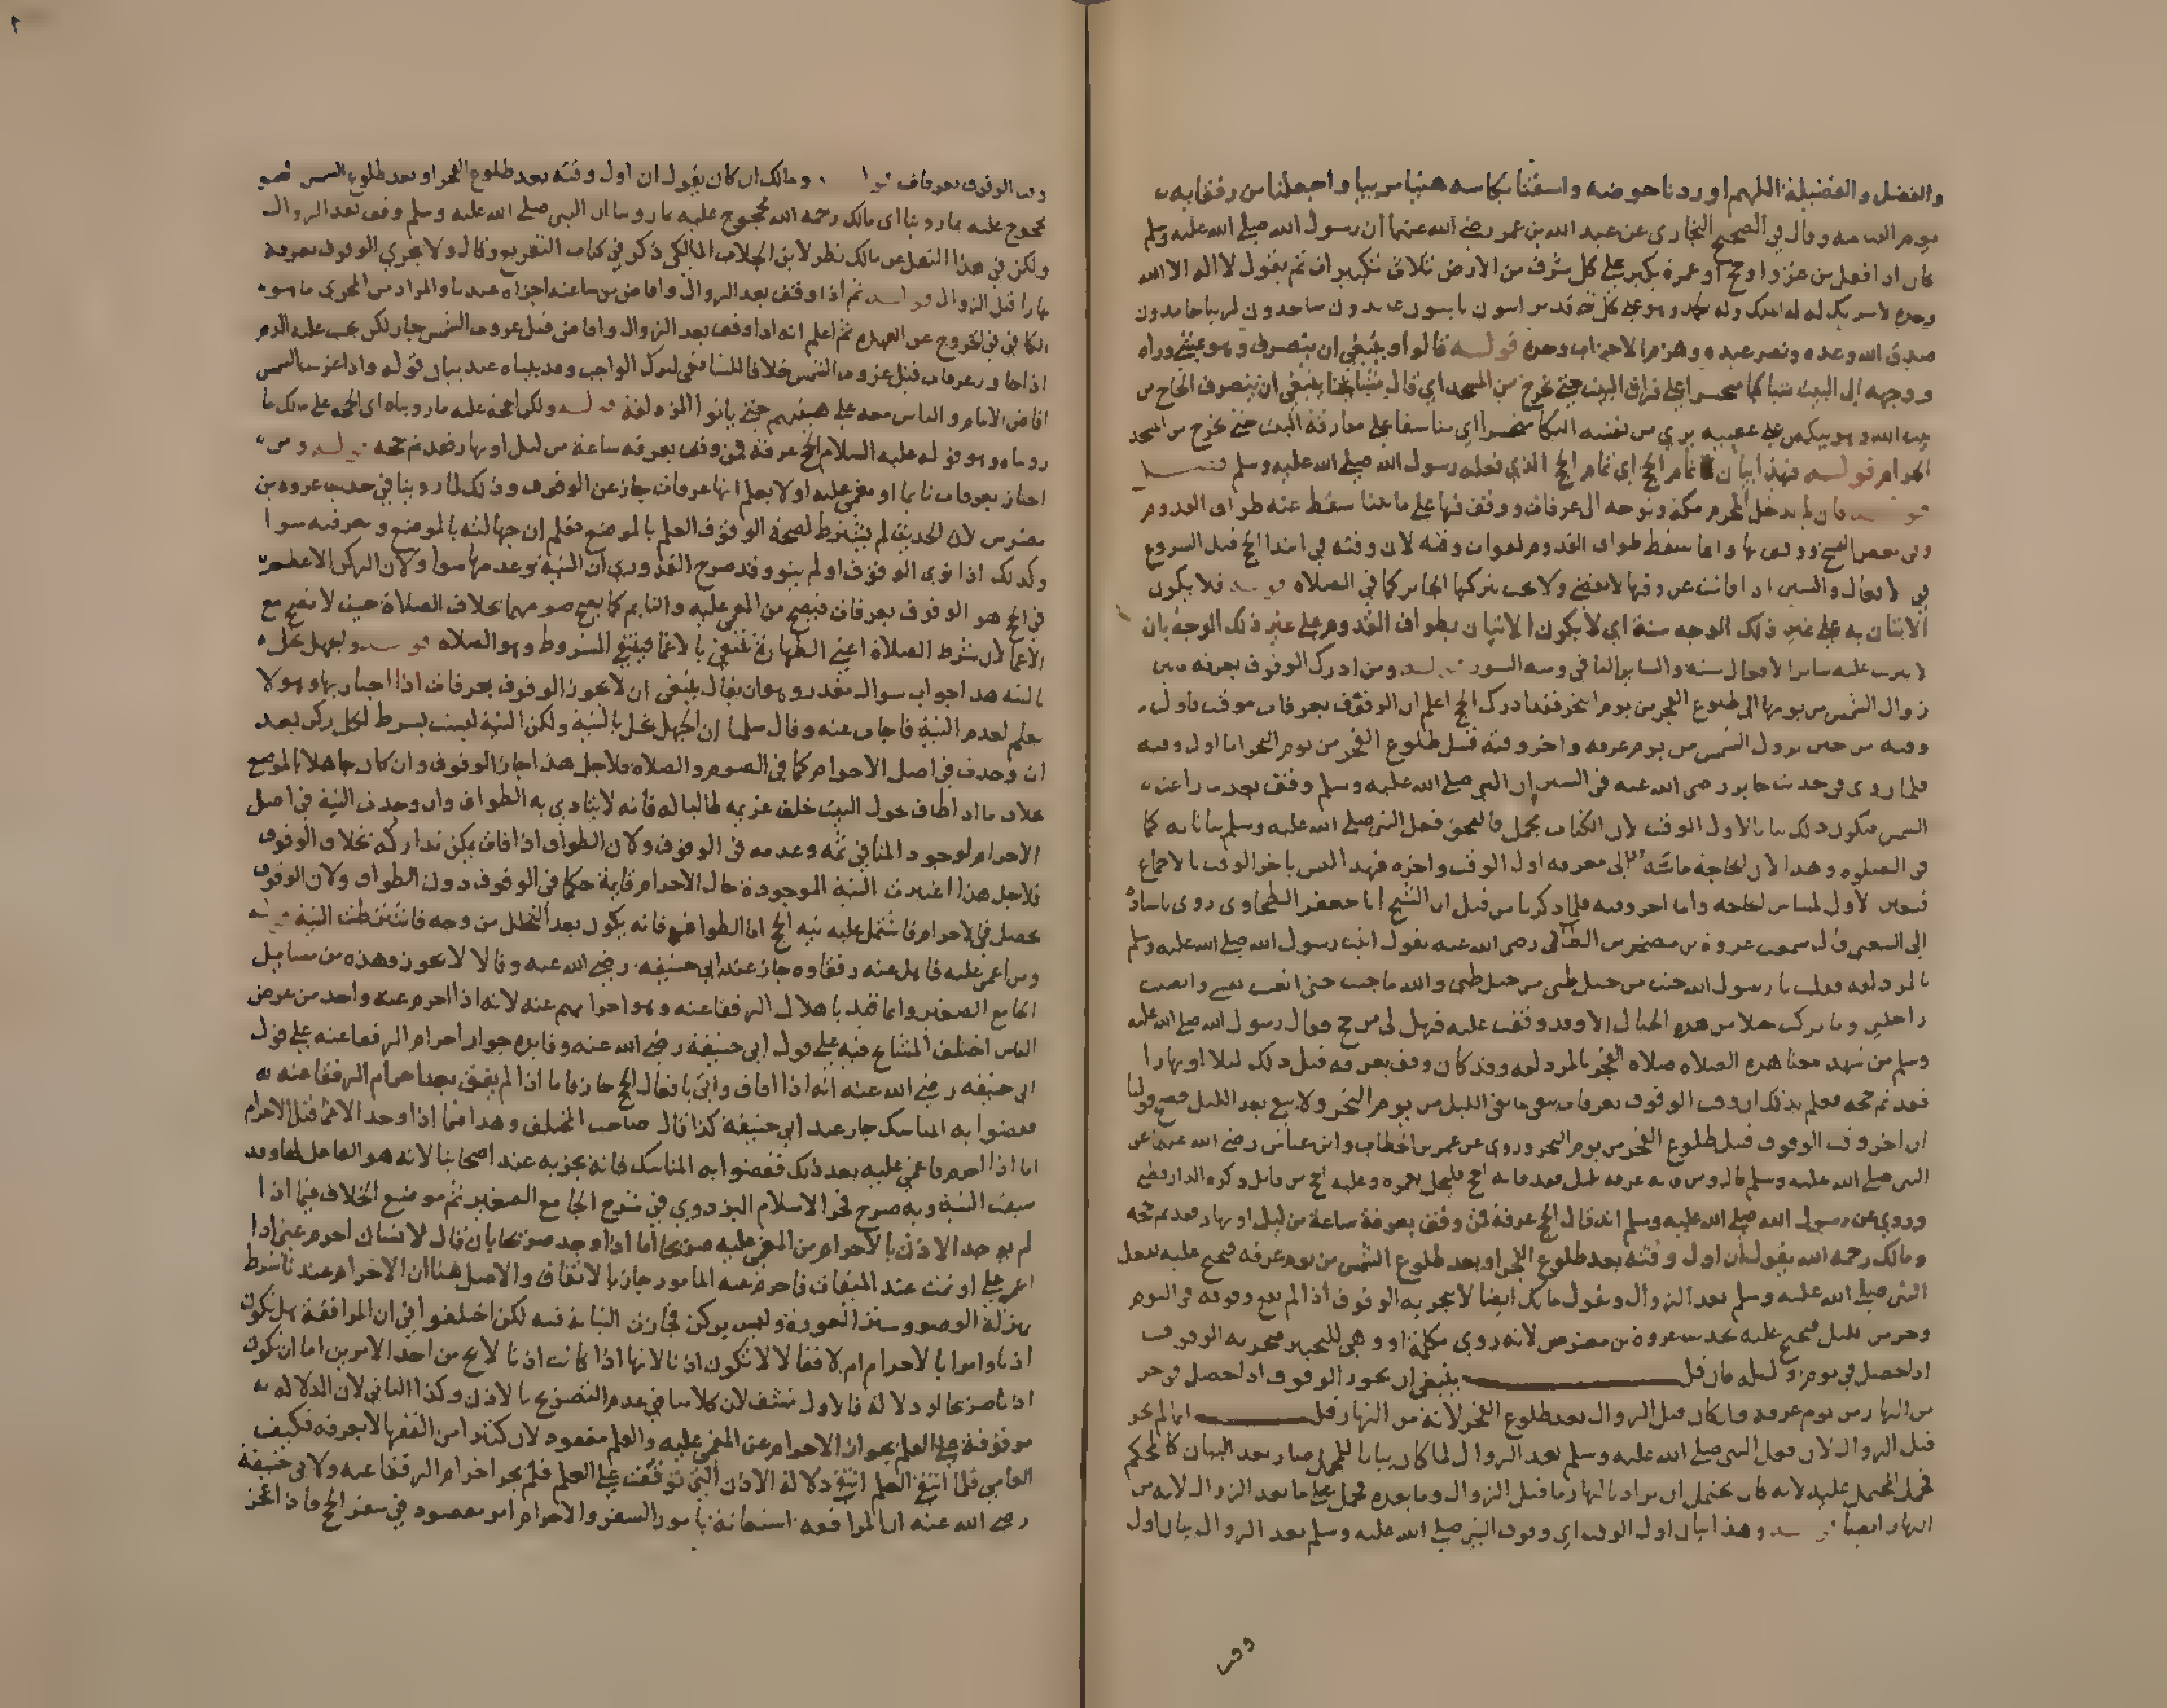 والفضل والفضيلة اللهم اوردنا حوضه واسقنا بكاسه هنيا مريا واجعلنا من رفقايه
يوم القيمه وقال في الصحيح البخاري عن عبد الله بن عمر رضي الله عنهما ان رسول الله صلي الله عليه وسلم
كان اذا قفل من غزو او حج او عمرة يكبر علي كل شرف من الارض ثلاث تكبيرات ثم يقول لا اله الا الله
وحده لا شريك له له الملك وله الحمد وهو علي كل شي قدير اىبون تايبون عابدون ساجدون لربنا حامدون
صدق الله وعده ونصر عبده وهزم الاحزاب وحده قوله قالوا وينبغي ان ينصرف وهو يمشي وراه
ووجهه الي البيت متباكيا متحسرا علي فراق البيت حتي يخرج من المسجد اي قال مشايخنا ينبغي ان ينصرف الحاج من
بيت الله وهو ينكص علي عقبيه يري من نفسه البكا متحسرا اي متاسفا علي مفارقة البيت حتي يخرج من المسجد
الحرام قوله فهذا بيان تمام الحج اي تمام الحج الذي فعله رسول الله صلي الله عليه وسلم فصل
قوله فان لم يدخل المحرم مكة وتوجه الي عرفات ووقف فيها علي ما بينا سقط عنه طواف القدوم
وفي بعض النسخ ووقف بها وانما سقط طواف القدوم لفوات وقته لان وقته في ابتدا الحج قبل الشروع
في الافعال والسنن اذا فاتت عن وقتها لا تقضي ولا يجب بتركها الجابر كما في الصلاة قوله فلا يكون
الاتيان به علي غير ذلك الوجه سنة اي لا يكون الاتيان بطواف القدوم علي غير ذلك الوجه بان
لا يترتب عليه ساير الافعال سنه والساير الباقي ومنه السور قوله ومن ادرك الوقوف بعرفه ما بين
زوال الشمس من يومها الي طلوع الفجر من يوم النحر فقد ادرك الحج اعلم ان الوقوف بعرفات موقت فاول
وقته من حين تزول الشمس من يوم عرفه واخر وقته قبل طلوع الفجر من يوم النحر اما اول وقته
فلما روي في حديث جابر رضي الله عنه في السنن ان النبي صلي الله عليه وسلم وقف بعد ما زاغت
الشمس فيكون ذلك بيانا لاول الوقت لان الكتاب مجمل فالتحق فعل النبي صلي الله عليه وسلم بيانا به كما
في الصلوه وهذا لان الحاجة ماسة الي معرفه اول الوقت واخره فهذا ليس باخر الوقت بالاجماع
فتعين الاول لمساس الحاجه واما اخر وقته فلما ذكرنا من قبل ان الشيخ ابا جعفر الطحاوي روي باسناده
الي الشعبي قال سمعت عروة بن مضرس الطائي رضي الله عنه يقول اتيت رسول الله صلي الله عليه وسلم
بالمزدلفه فقلت يا رسول الله جيت من جبل طي من جبل طي والله ما جيت حتي اتعبت نفسي وانصبت
راحلتي وما تركت حبلا من هذه الجبال الا وقد وقفت عليه فهل لي من حج فقال رسول الله صلي الله عليه
وسلم من شهد معنا هذه الصلاه صلاه الفجر بالمزدلفه وقد كان وقف بعرفه قبل ذلك ليلا او نهارا
فقد تم حجه فعلم بذلك ان وقت الوقوف بعرفات يبقي ما بقي الليل من يوم النحر ولا يبقي بعد الليل فصح قولنا
ان اخر وقت الوقوف قبل طلوع الفجر من يوم النحر وروي عن عمر بن الخطاب وابن عباس رضي الله عنهما عن
النبي صلي الله عليه وسلم قال ومن فاته عرفه بليل فقد فاته الحج فليحل بعمره وعليه الحج من قابل ذكره الدارقطني
وروي عن رسول الله صلي الله عليه وسلم انه قال الحج عرفة فمن وقف بعرفة ساعة من ليل او نهار فقد تم حجه
ومالك رحمه الله يقول ان اول وقته بعد طلوع الفجر او بعد طلوع الشمس من يوم عرفه فيحتج عليه بفعل
النبي صلي الله عليه وسلم بعد الزوال ويقول مالك ايضا لا يجزيه الوقوف اذا لم يقع وقوفه في اليوم
وجزء من الليل فيحتج عليه بحديث عروة بن مضرس لانه روي بكلمة او وهي للتخيير فيجزيه الوقوف
اذا حصل في يوم او ليله فان قيل ينبغي ان يجوز الوقوف اذا حصل في جزء
من النهار من يوم عرفه وان كان قبل الزوال بعد طلوع الفجر لانه من النهار قيل انما لم يجز
قبل الزوال لان فعل النبي صلي الله عليه وسلم بعد الزوال لما كان بيانا للمجمل صار بعد البيان كالمحكم
فحمل المحتمل عليه لانه كان يحتمل ان يراد بالنهار ما قبل الزوال وما بعده فحمل علي ما بعد الزوال لانه من
النهار ايضا قوله وهذا بيان اول الوقت اي وقوف النبي صلي الله عليه وسلم بعد الزوال بيان اول
وقت
وقت الوقوف بعرفات قوله ومالك ان كان يقول ان اول وقته بعد طلوع الفجر او بعد طلوع الشمس فهو
محجوج عليه بما روينا اي مالك رحمه الله محجوج عليه بما روينا ان النبي صلي الله عليه وسلم وقف بعد الزوال
ولكن في هذا النقل عن مالك نظر لان ابن الجلاب المالكي ذكر في كتاب التفريع وقال ولا يجزي الوقوف بعرفة
نهارا قبل الزوال قوله ثم اذا وقف بعد الزوال وافاض من ساعته اجزاه عندنا والمراد من المجزي ما هو
الكافي في الخروج عن العهده ثم اعلم انه اذا وقف بعد الزوال وافاض قبل غروب الشمس جاز لكن يجب عليه الدم
اذا جاوز عرفات قبل غروب الشمس خلافا للشافعي لترك الواجب وقد بيناه عند بيان قوله واذا غربت الشمس
افاض الامام والناس معه علي هينتهم حتي ياتوا المزدلفة قوله ولكن الحجة عليه ما رويناه اي الحجة علي مالك ما
رويناه وهو قوله عليه السلام الحج عرفة فمن وقف بعرفه ساعة من ليل او نهار فقد تم حجه قوله ومن
اجتاز بعرفات نايما او مغمي عليه او لا يعلم انها عرفات جاز عن الوقوف وذلك لما روينا في حديث عروه بن
مضرس لان الحديث لم يشترط لصحة الوقوف العلم بالموضع فعلم ان جهالته بالموضع ومعرفته سوا
وكذلك اذا نوي الوقوف او لم ينو وقد صرح القدوري ان النية وعدمها سوا ولان الركن الاعظم
في الحج هو الوقوف بعرفات فيصح من المغمي عليه والنايم كما يصح صومهما بخلاف الصلاة حيث لا تصح مع
الاغما لان شرط الصلاة اعني الطهارة تنتفي بالاغما فينتفي المشروط وهو الصلاه قوله والجهل يخل
بالنيه هذا جواب سوال مقدر وهو ان يقال ينبغي ان لا يجوز الوقوف بعرفات اذا اجتاز بها وهو لا
يعلم لعدم النية فاجاب عنه وقال سلمنا ان الجهل يخل بالنية ولكن النية ليست بشرط لكل ركن بعد
ان وجدت في اصل الاحرام كما في الصوم والصلاه فلاجل هذا جاز الوقوف وان كان جاهلا بالموضع
بخلاف ما اذا طاف حول البيت خلف غريمه طالبا له فانه لا يتادي به الطواف وان وجدت النية في اصل
الاحرام لوجود المنافي ثمه وعدمه في الوقوف ولان الطواف اذا فات يمكن تداركه بخلاف الوقوف
فلاجل هذا اعتبرت النية الموجودة حال الاحرام قايمة حكما في الوقوف دون الطواف ولان الوقوف
يحصل في الاحرام فاشتمل عليه نيه الحج اما الطواف فانه يكون بعد التحلل من وجه فاشترطت النية قوله
ومن اغمي عليه فاهل عنه رفقاوه جاز عند ابي حنيفه رضي الله عنه وقالا لا يجوز وهذه من مسايل
الجامع الصغير وانما قيد باهلال الرفقا عنه وهو احرامهم عنه لانه اذا احرم عنه واحد من عرض
الناس اختلف المشايخ فيه علي قول ابي حنيفة رضي الله عنه وفايده جواز احرام الرفقا عنه علي قول
ابي حنيفه رضي الله عنه انه اذا افاق واتي بافعال الحج جاز فاما اذا لم يفق بعد احرام الرفقا عنه
فقضوا به المناسك جاز عند ابي حنيفه كذا قال صاحب المختلف وهذا فيما اذا وجد الاغما قبل الاحرام
اما اذا احرم فاغمي عليه بعد ذلك فقضوا به المناسك فانه يجزيه عند اصحابنا لانه هو الفاعل لها وقد
سبقت النية وبه صرح فخر الاسلام البزدوي في شرح الجامع الصغير ثم موضع الخلاف فيما اذا
لم يوجد الاذن بالاحرام من المغمي عليه صريحا اما اذا وجد صريحا بان قال لانسان احرم عني اذا
اغمي علي او نمت عند الميقات فاحرم عنه المامور جاز بالاتفاق والاصل هنا ان الاحرام عندنا شرط
بمنزلة الوضو وستر العورة وليس بركن فجازت النيابة فيه لكن اختلفوا في ان المرافقة هل تكون
اذنا دلالة بالاحرام ام لا فقالا لا تكون اذنا لانها اذا كانت اذنا لا يخ من احد الامرين اما ان تكون
اذنا صريحا او دلالة فالاول منتف لان كلامنا في عدم التصريح بالاذن وكذا الثاني لان الدلاله
موقوفة علي العلم بجواز الاحرام عن المغمي عليه والعلم مفقود لان كثيرا من الفقها لا يعرفه فكيف
العامي فلما انتفي العلم انتفي دلالة الاذن التي توقفت علي العلم فلم يجز احرام الرفقا عنه ولابي حنيفة
رضي الله عنه ان المرافقه استعانة بامور السفر والاحرام امر مقصود في سفر الحج فاذا عجز